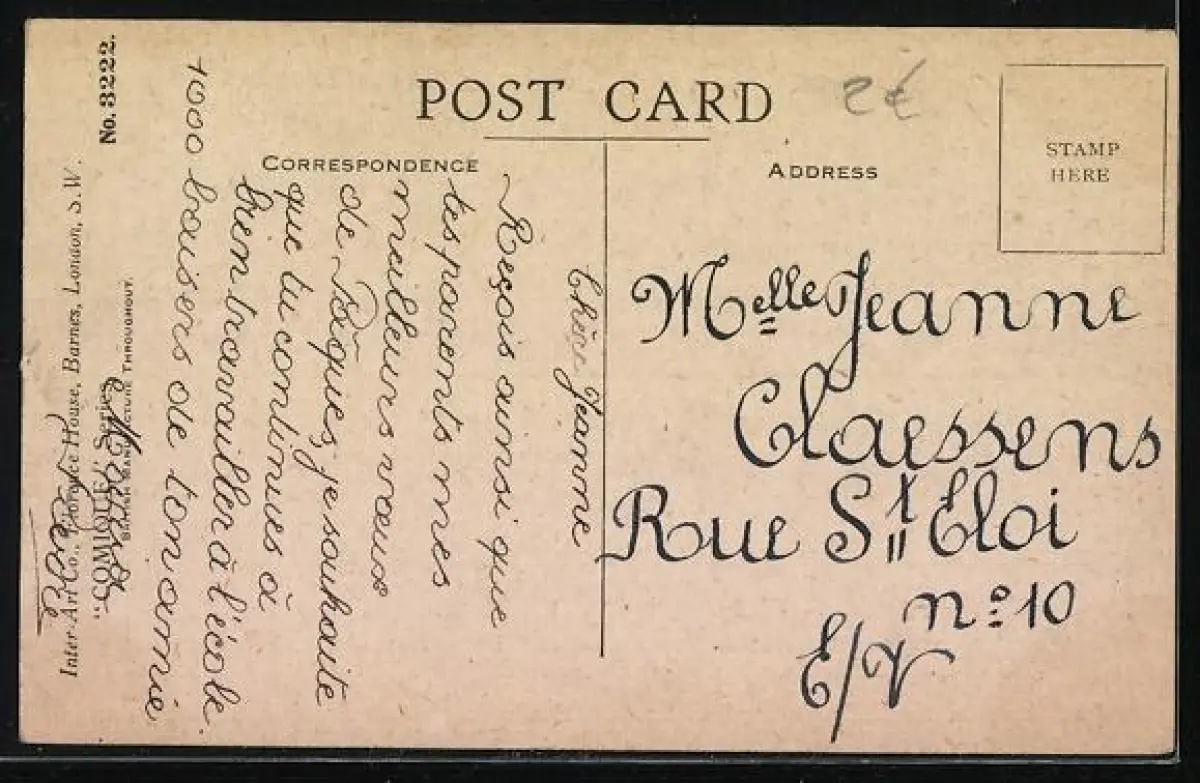 POST CARD
2€
CORRESPONDENCE
ADDRESS
STAMP
HERE
Chère Jeanne
Reçois ainsi que
tes parents mes
meilleurs vœux
de Pâques, je souhaite
que tu continues à
bien travailler à l'école
1000 baisers de ton amie
Melle Jeanne
Claessens
Rue St Eloi
nº 10
E/V
No. 3222.
BRITISH MANUFACTURE THROUGHOUT.
"COMIQUE" Series
Inter-Art Co., Florence House, Barnes, London, S.W.